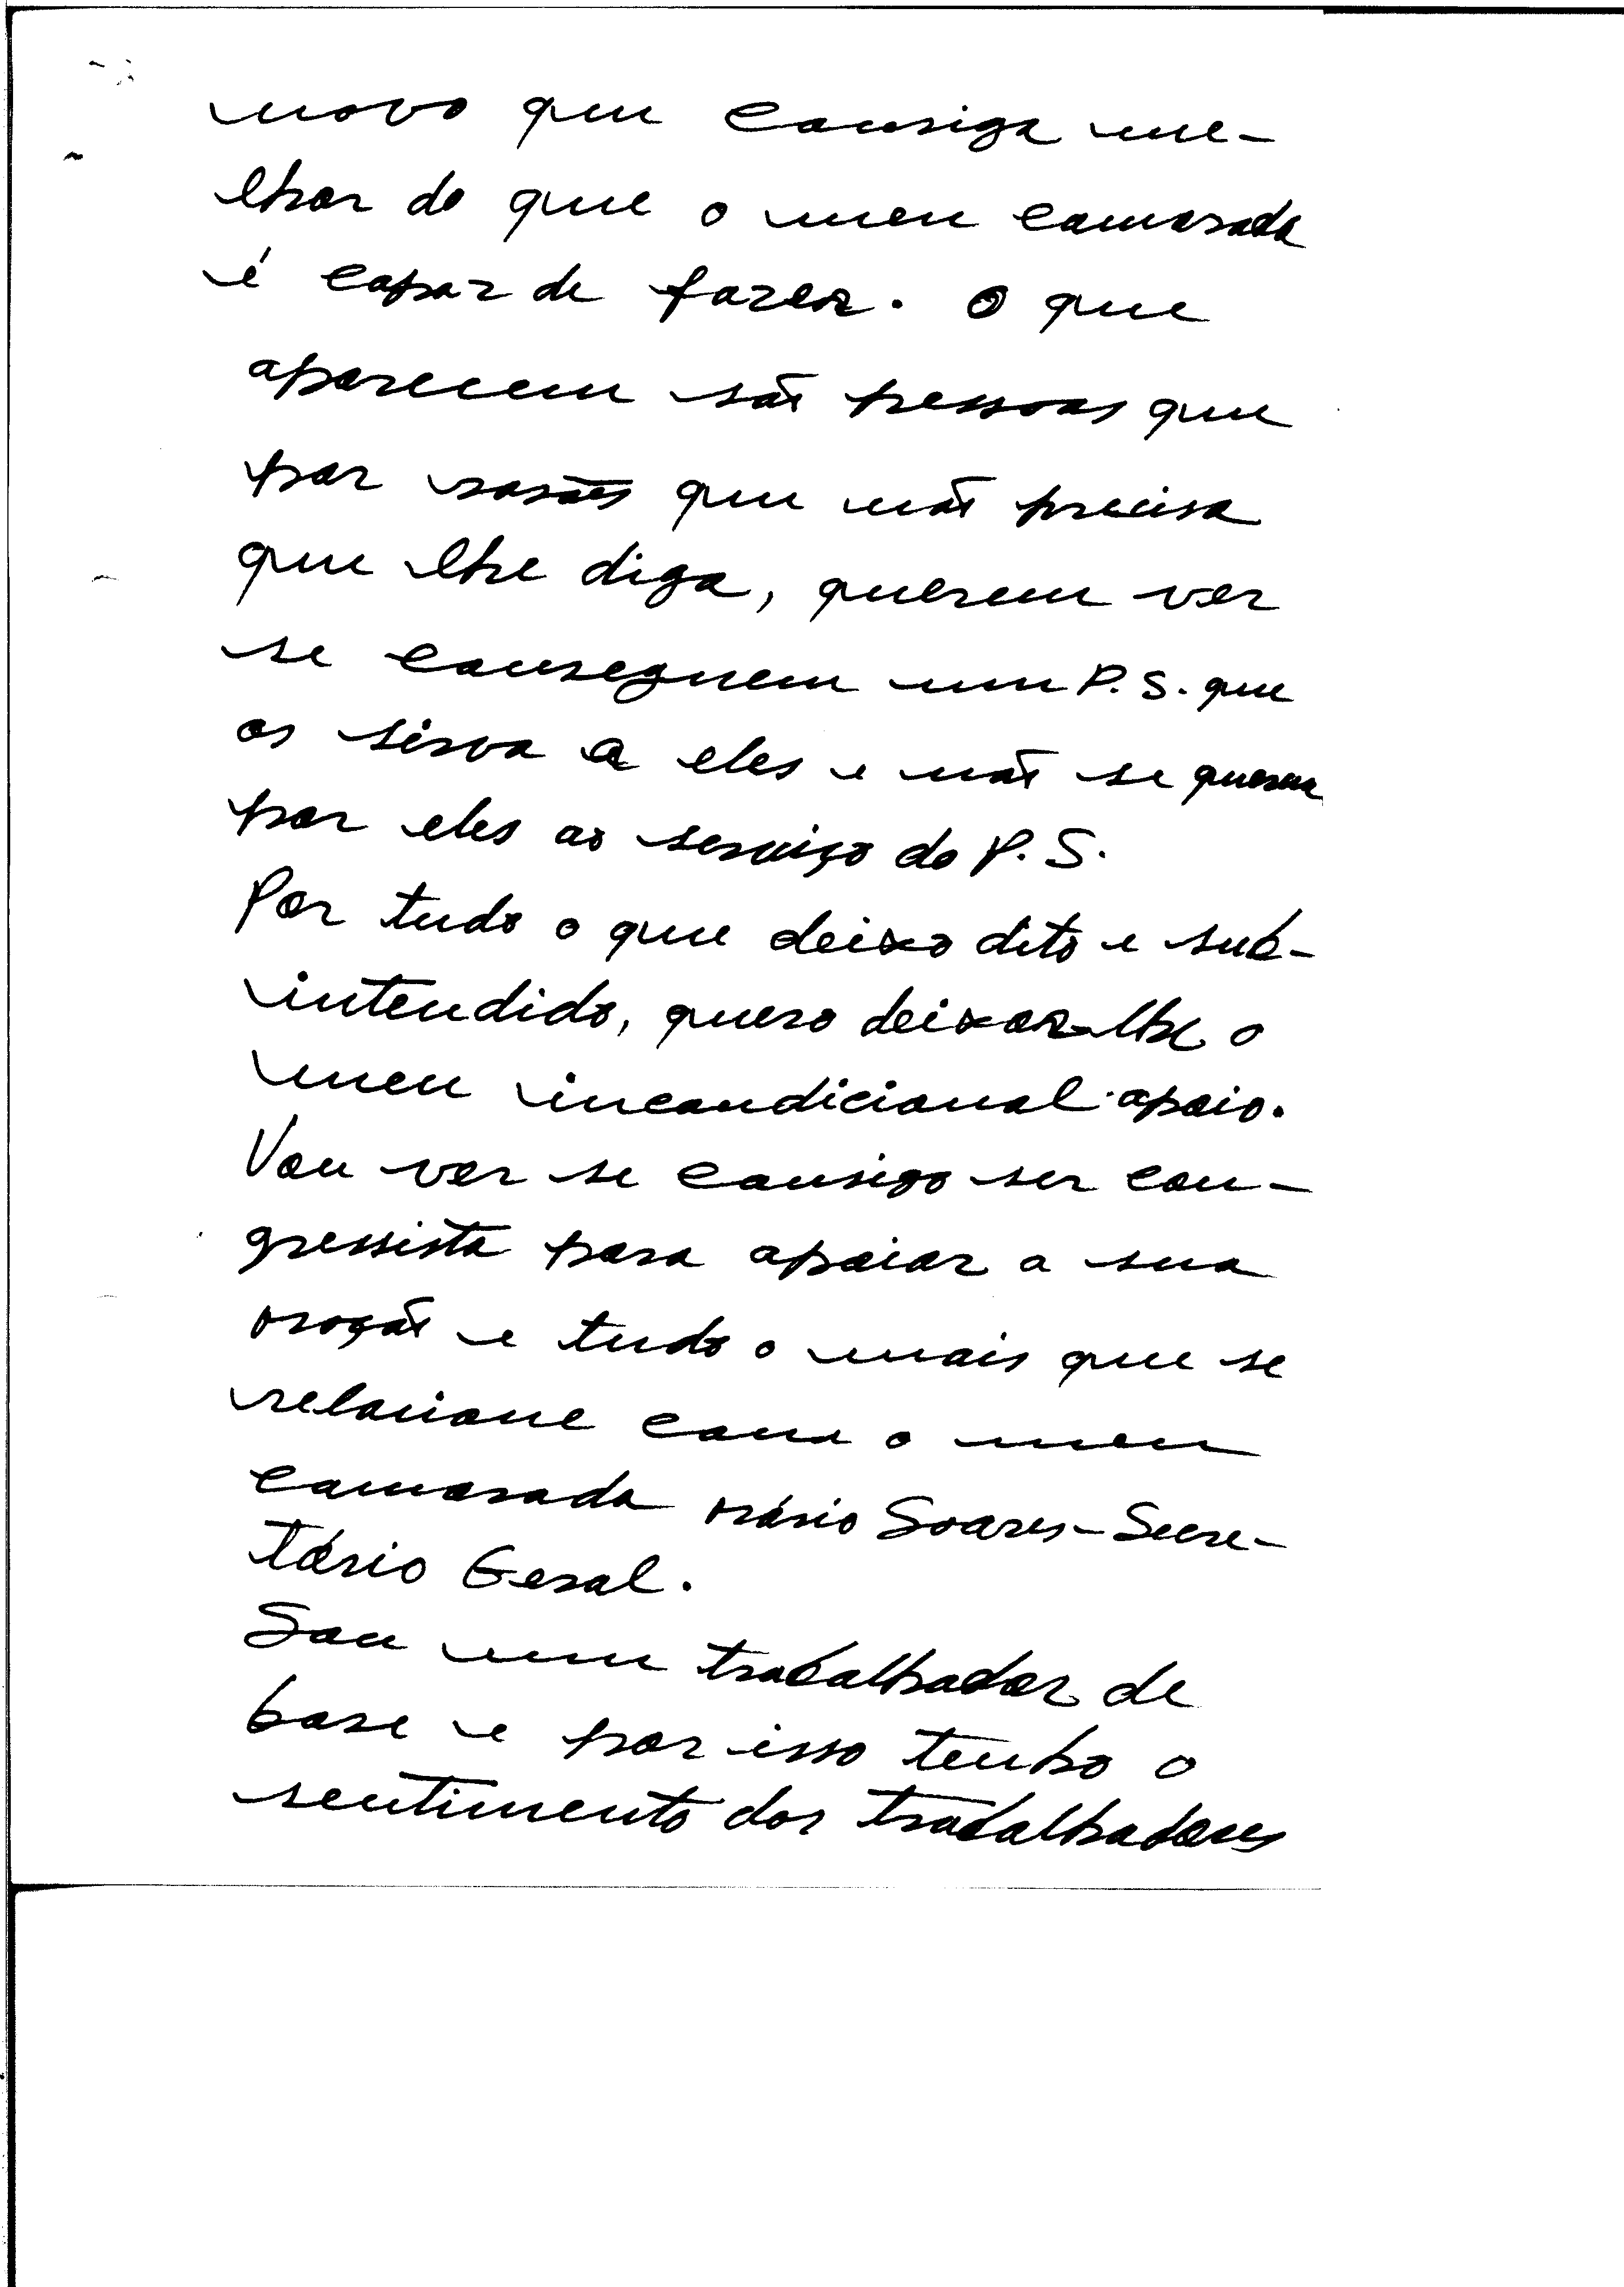 novo que consiga me-
lhor do que o meu camarada
é capaz de fazer. O que
aparecem são pessoas que
por rasões que não precisa
que lhe diga, querem ver
se conseguem um P.S. que
os sirva a eles e não se querem
por eles ao serviço do P.S.
Por tudo o que deixo dito e sub-
intendido, quero deixar-lhe o
meu incondicional apoio.
Vou ver se consigo ser con-
gressista para apoiar a sua
moção e tudo o mais que se
relacione com o meu
camarada Mário Soares-Secre-
tário Geral.
Sou um trabalhador de
base e por isso tenho o
sentimento dos trabalhadores